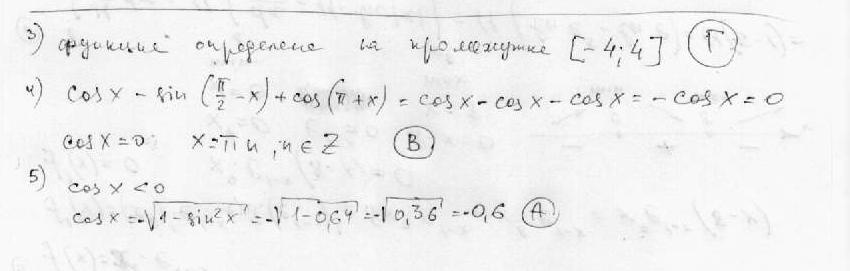 3) функция определена на промежутке [-4;4] Г
4) cos x - sin (π/2 - x) + cos (π + x) = cos x - cos x - cos x = - cos x = 0
cos x = 0; x = πn, n ∈ Z В
5) cos x < 0
cos x = -√(1 - sin²x) = -√(1 - 0,64) = -√0,36 = -0,6 А